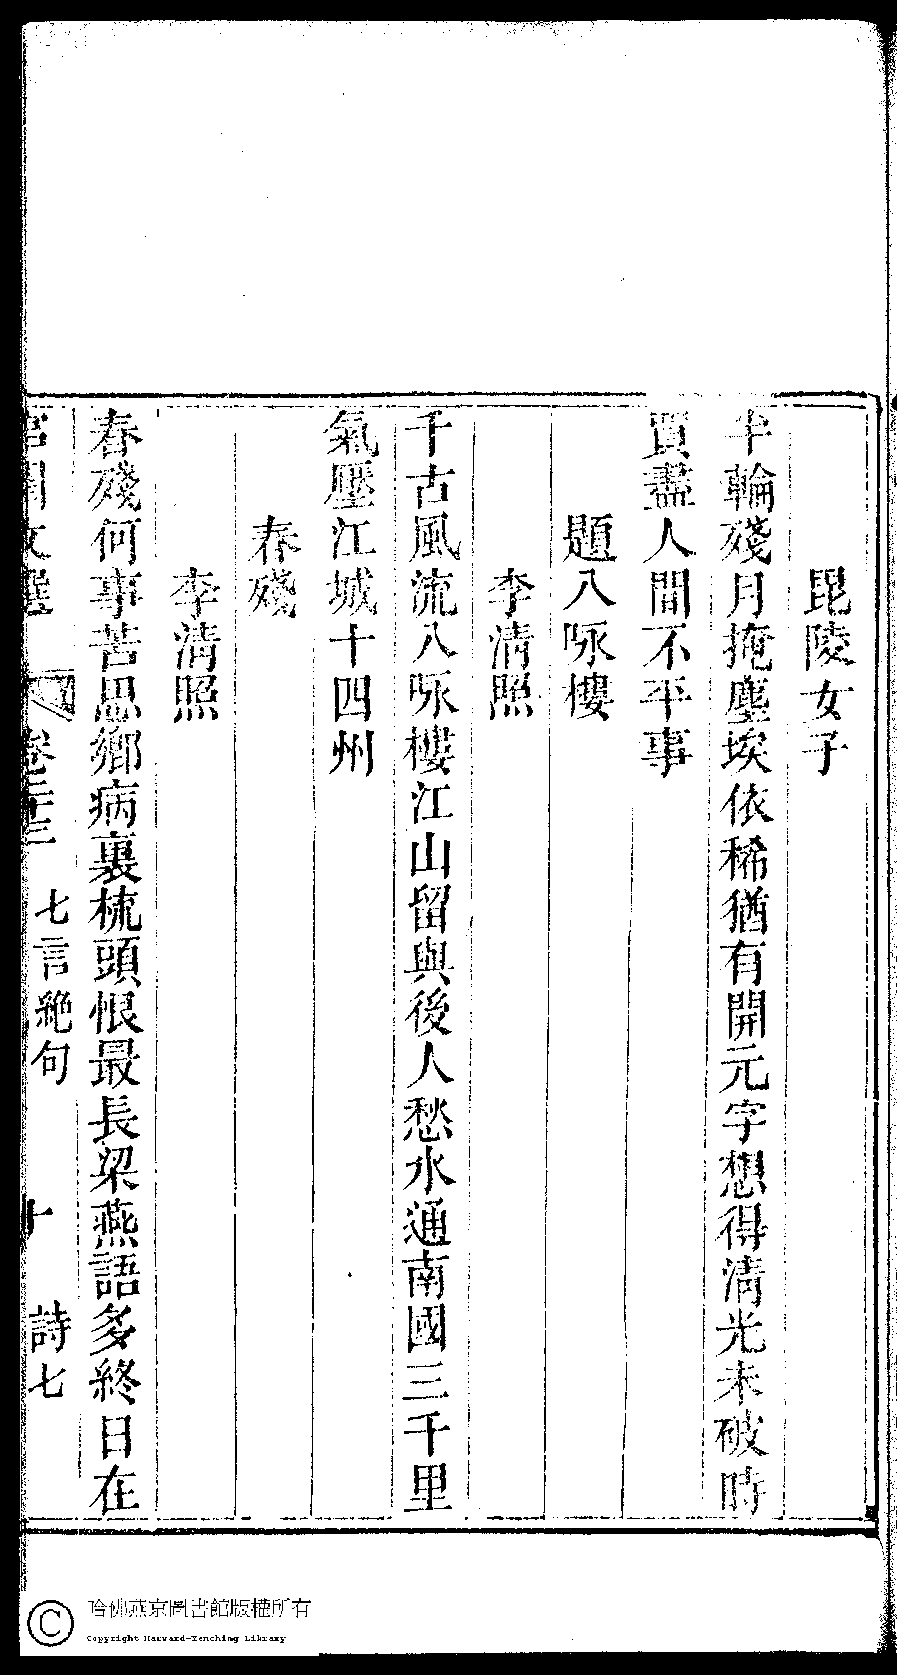 毘陵女子
半輪殘月掩塵埃依稀猶有開元字想得清光未破時
買盡人間不平事
題八咏樓
李清照
千古風流八咏樓江山留與後人愁水通南國三千里
氣壓江城十四州
春殘
李清照
春殘何事苦思鄉病裏梳頭恨最長梁燕語多終日在
宮閨文選 卷二十三 七言絶句 十 詩七
哈佛燕京圖書館版權所有
Copyright Harvard-Yenching Library